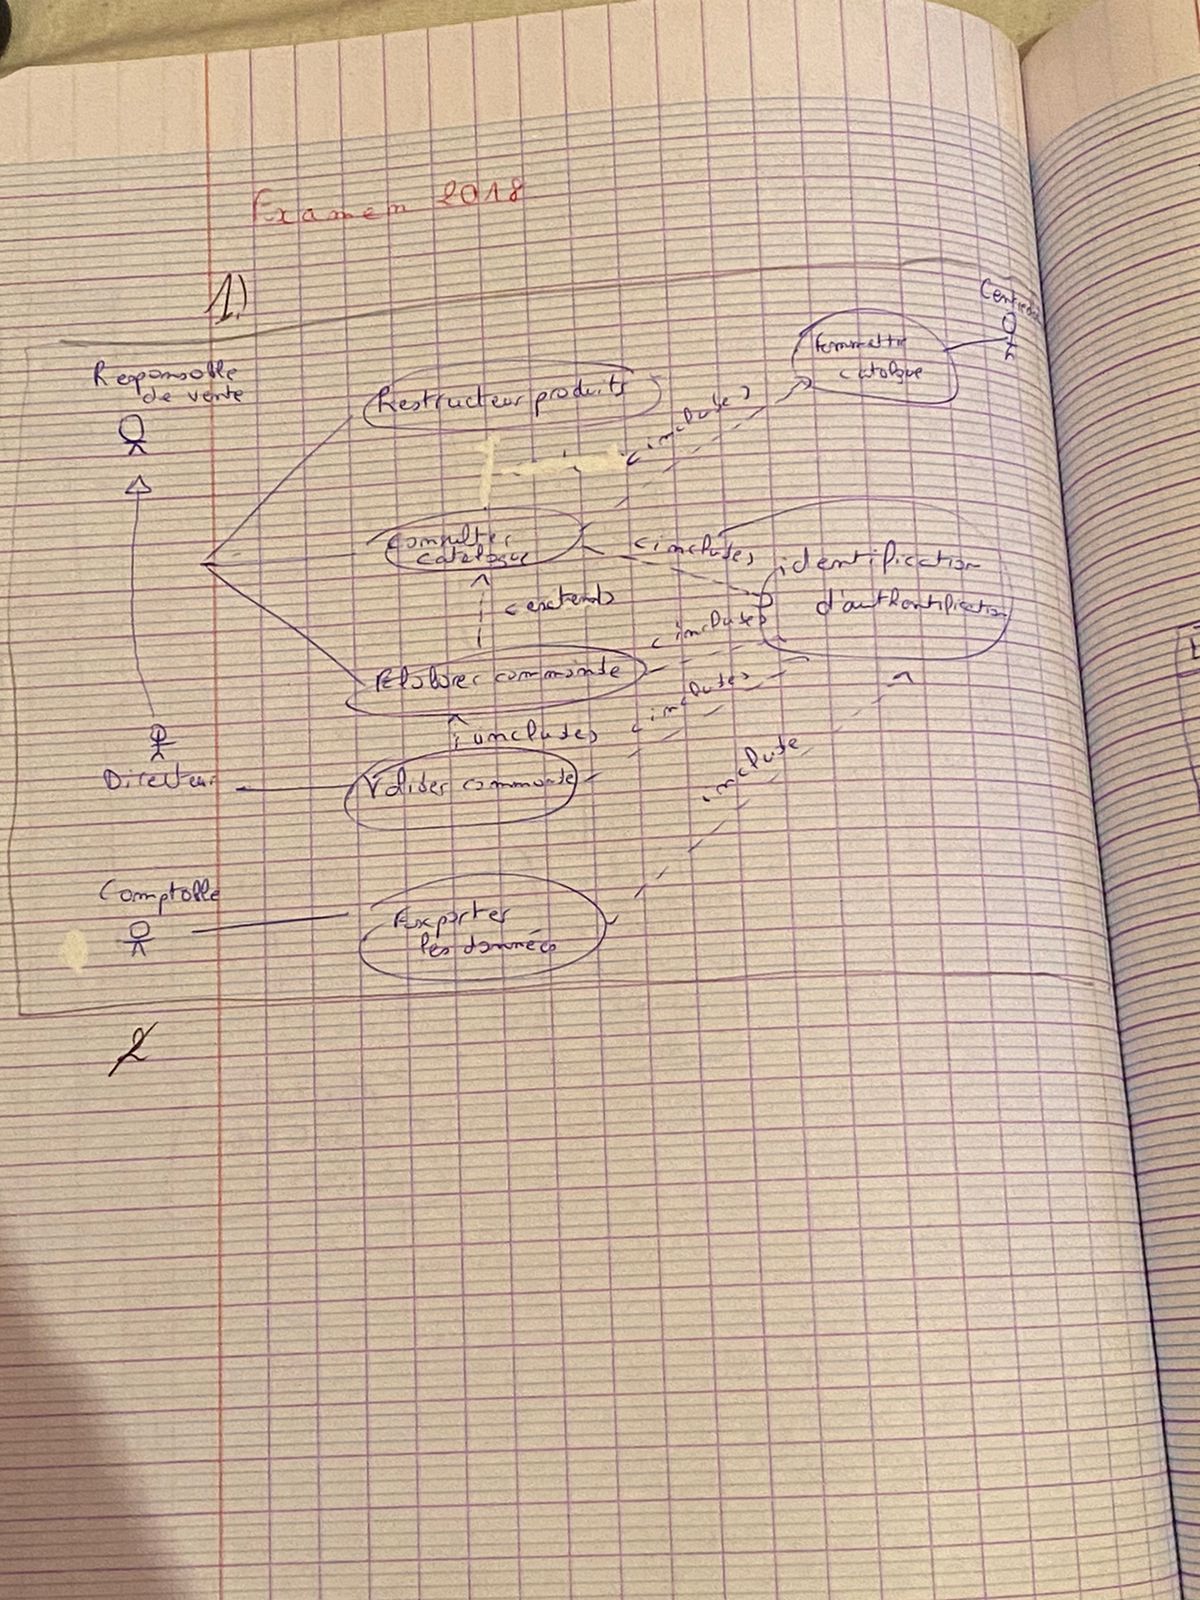 Examen 2018
1)
Centrale
Responsable
de vente
Restructeur produits
catalogue
<include>
Consulter
catalogue
<includes>
identification
d'authentification
<extend>
<includes>
Elaborer commande
<includes>
includes
Directeur
Valider commande
include
Comptable
Exporter
les données
2